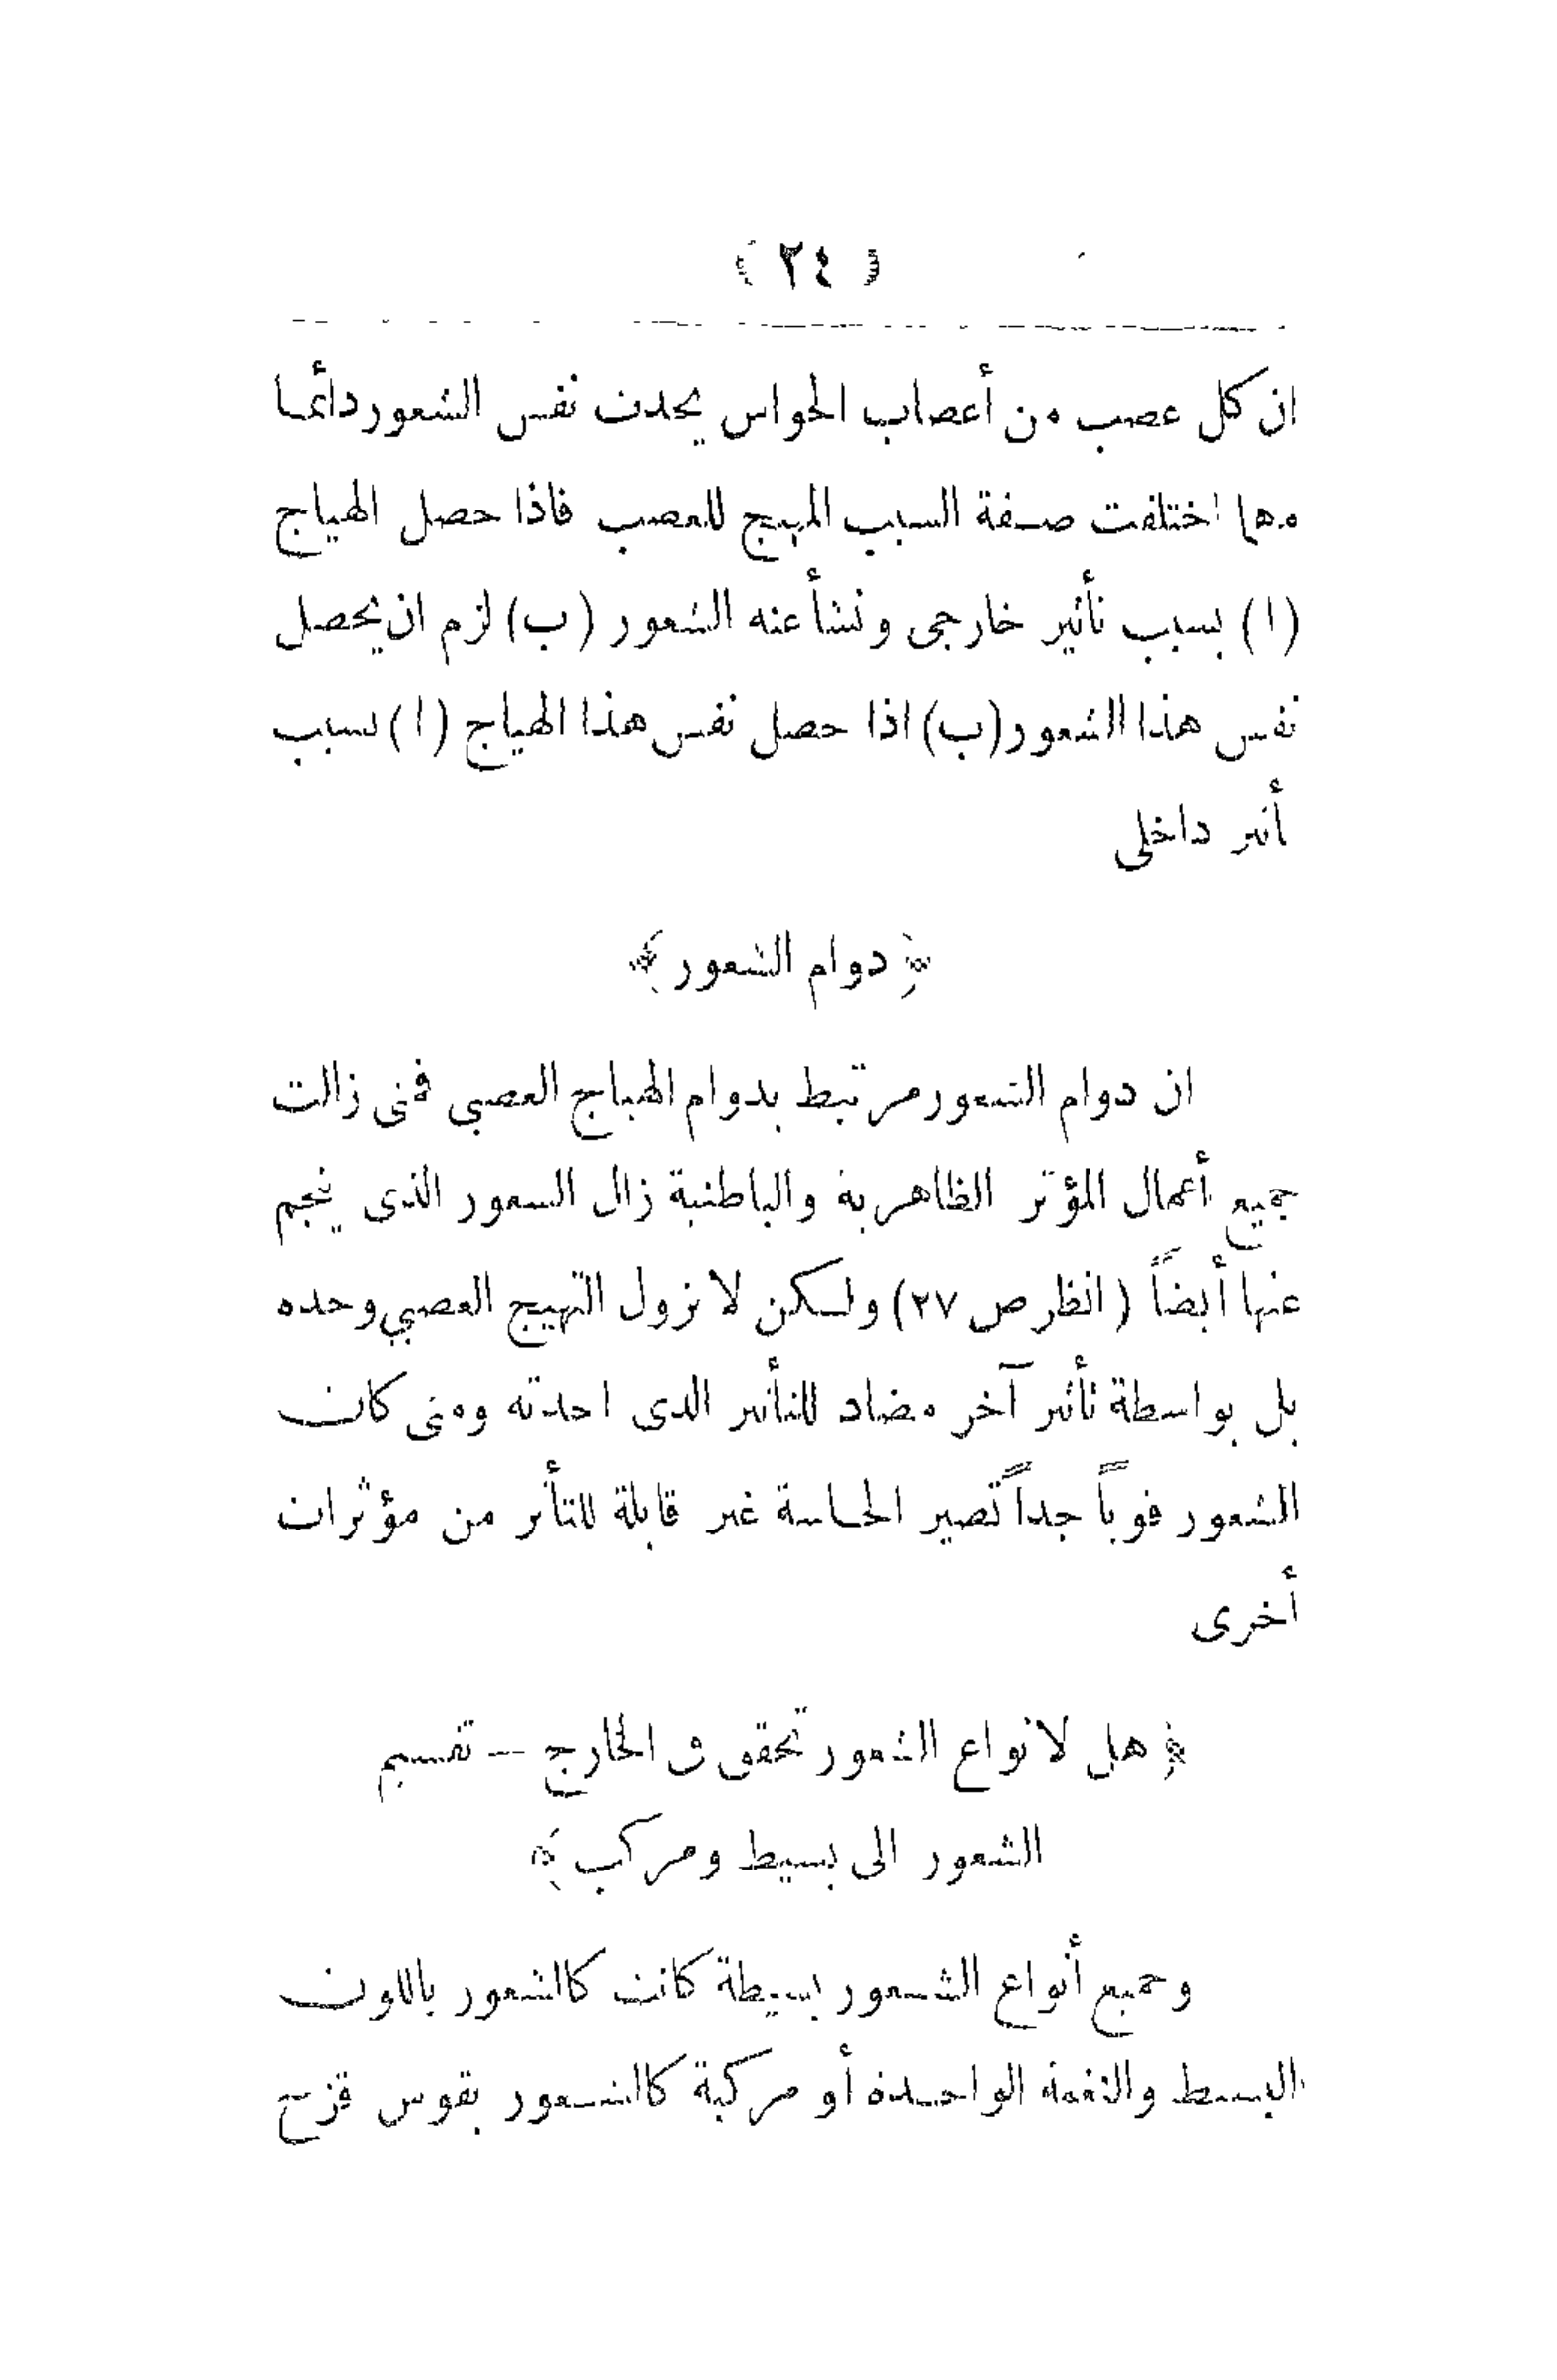 ﴿ ٢٤ ﴾
ان كل عصب من أعصاب الحواس يحدث نفس الشعور دائما
مهما اختلفت صفة السبب المهيج للعصب فاذا حصل الهياج
(ا) بسبب تأثير خارجى ونشأ عنه الشعور (ب) لزم ان يحصل
نفس هذا الشعور (ب) اذا حصل نفس هذا الهياج (ا) بسبب
أثير داخلى
﴿ دوام الشعور ﴾
ان دوام الشعور مرتبط بدوام الهياج العصبي فمتى زالت
جميع أعمال المؤثر الظاهرية والباطنية زال الشعور الذى ينجم
عنها أيضاً (انظر ص ٢٧) ولكن لا يزول التهييج العصبي وحده
بل بواسطة تأثير آخر مضاد للتأثير الذى احدثه ومتى كان
الشعور قوياً جداً تصير الحاسة غير قابلة للتأثر من مؤثرات
أخرى
﴿ هل لانواع الشعور تحقق فى الخارج — تقسيم
الشعور الى بسيط ومركب ﴾
وجميع أنواع الشعور بسيطة كانت كالشعور باللون
البسيط والنغمة الواحدة أو مركبة كالشعور بقوس قزح